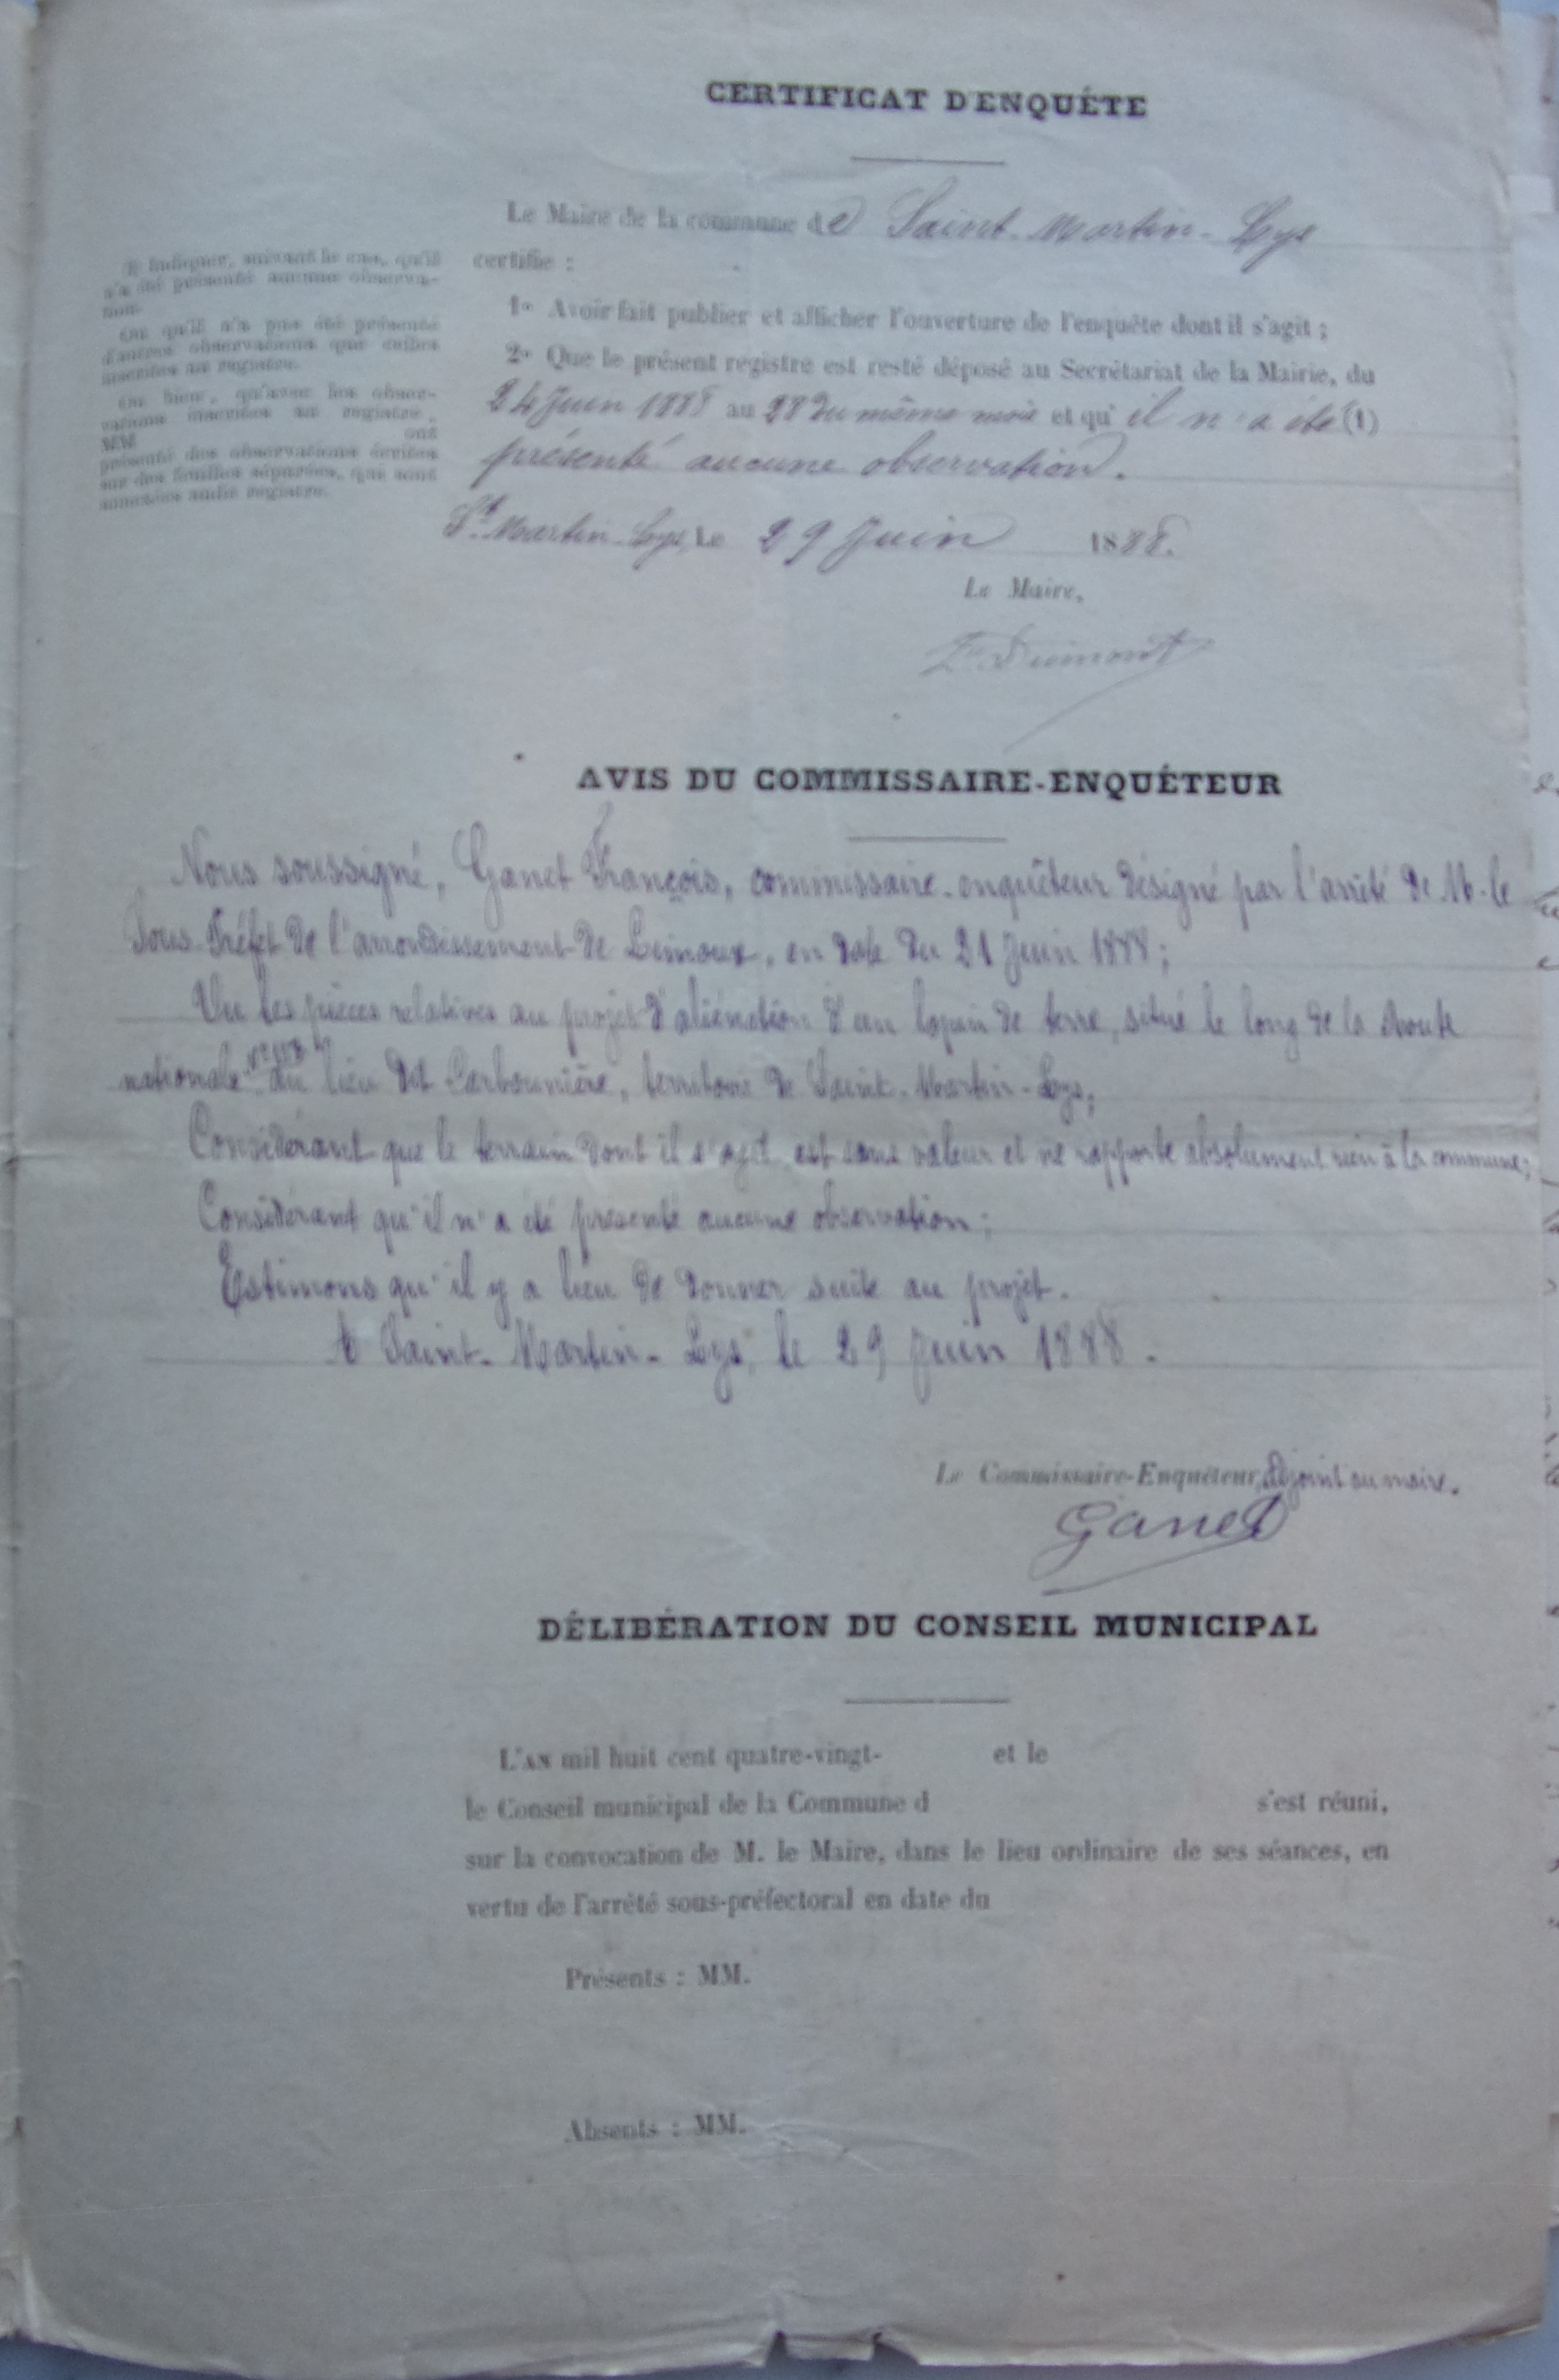 CERTIFICAT D'ENQUÊTE
Le Maire de la commune de Saint-Martin-Lys
certifie :
1° Avoir fait publier et afficher l'ouverture de l'enquête dont il s'agit ;
2° Que le présent registre est resté déposé au Secrétariat de la Mairie, du
24 Juin 1888 au 28 du même mois et qu'il n'a été (1)
présenté aucune observation.
(1) Indiquer, suivant le cas, qu'il
n'a été présenté aucune observa-
tion.
Ou qu'il n'a pas été présenté
d'autres observations que celles
inscrites au registre.
Ou bien, qu'outre les obser-
vations inscrites au registre,
MM ont
présenté des observations écrites
sur des feuilles séparées, qui sont
annexées audit registre.
St Martin-Lys, Le 29 Juin 1888.
Le Maire,
Dumont
AVIS DU COMMISSAIRE-ENQUÊTEUR
Nous soussigné, Ganet François, commissaire-enquêteur désigné par l'arrêté de M. le
Sous-Préfet de l'arrondissement de Limoux, en date du 21 Juin 1888 ;
Vu les pièces relatives au projet d'aliénation d'un lopin de terre, situé le long de la Route
nationale au lieu dit Carbounière, territoire de Saint-Martin-Lys ;
Considérant que le terrain dont il s'agit est sans valeur et ne rapporte absolument rien à la commune ;
Considérant qu'il n'a été présenté aucune observation ;
Estimons qu'il y a lieu de donner suite au projet.
A Saint-Martin-Lys, le 29 Juin 1888.
Le Commissaire-Enquêteur, adjoint au maire.
Ganet
DÉLIBÉRATION DU CONSEIL MUNICIPAL
L'AN mil huit cent quatre-vingt- et le
le Conseil municipal de la Commune d s'est réuni,
sur la convocation de M. le Maire, dans le lieu ordinaire de ses séances, en
vertu de l'arrêté sous-préfectoral en date du
Présents : MM.
Absents : MM.